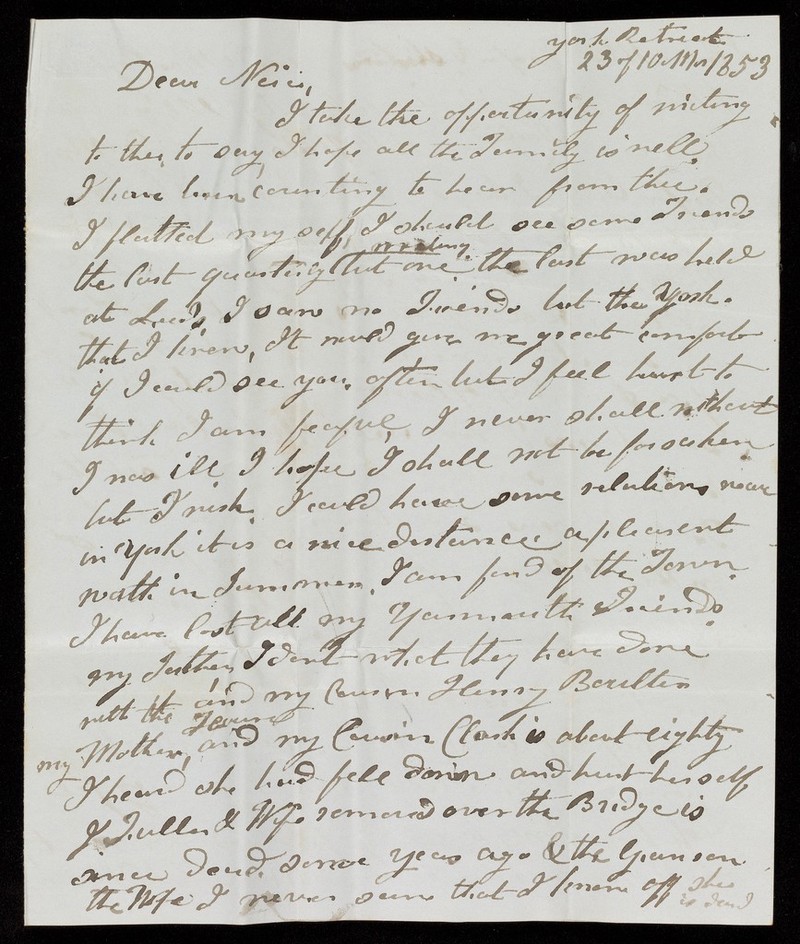 York Retreat
23 of 10 Mo 1853
Dear Neice,
I take the opportunity of writing
to thee, to say I hope all the Family is well.
I have been counting to hear from thee.
I flatted my self, I should see some Friends
meeting
the last quarterly but one the last was held
at Leeds, I saw no Friends but the York.
that I knew, It would give me great comfort
if I could see you, often but I feel hurt to
think I am fearful, I never shall without
I was ill I hope I shall not be forsaken
but I wish I could have some relations near
in York it is a nice distance a pleasent
walk in Summer. I am fond of the Town.
I have lost all my Yarmouth Friends
my Father, I dont what they have done
with the Town
and my Cousin Henry Boulter
my Mother, and my Cousin Clark is about eighty
I heard she had fell down and hurt herself
J Fuller & Wife removed over the Bridge is
since dead some years ago & the
the Wife I never saw that I know off she
is dead